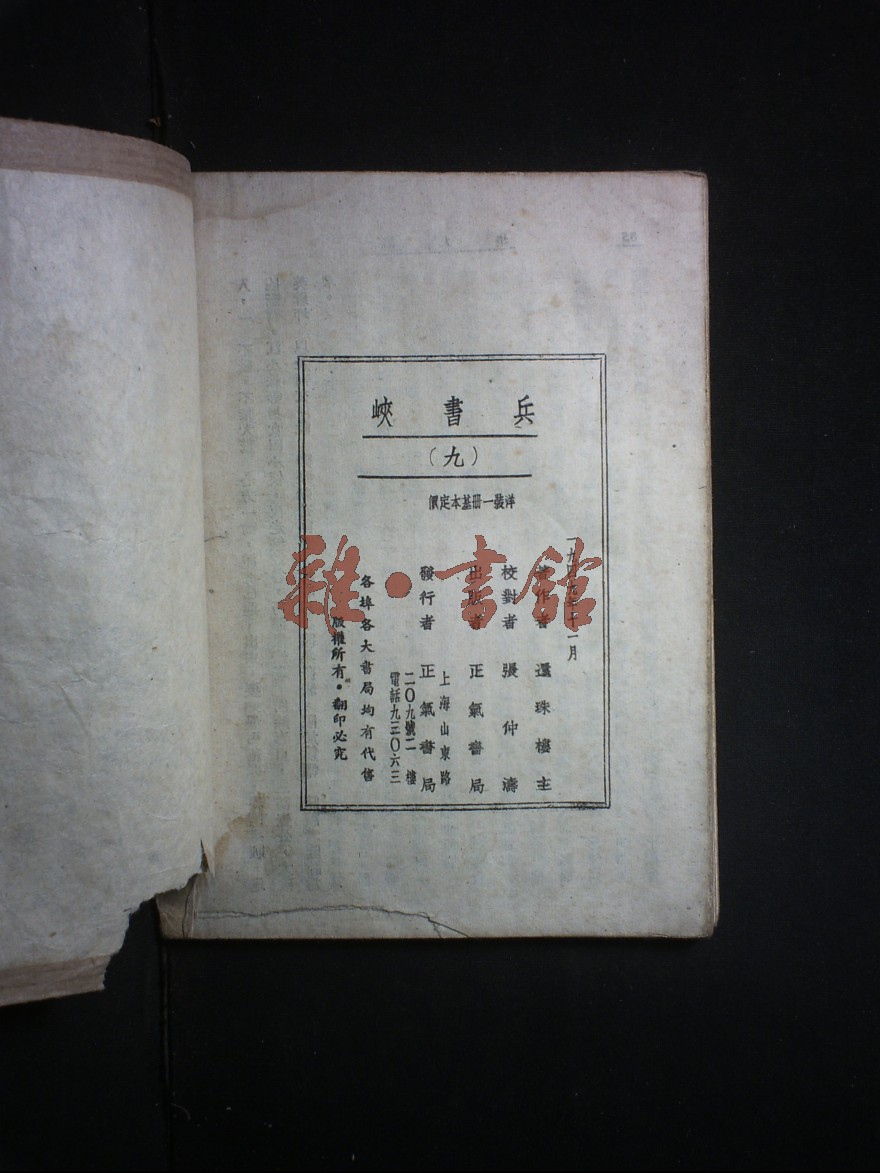 兵書峽
（九）
洋裝一冊基本定價
一九四九年十一月
著作者 還珠樓主
校對者 張仲濤
出版者 正氣書局
發行者 正氣書局
上海山東路
二〇九號二樓
電話九三〇六三
各埠各大書局均有代售
版權所有・翻印必究
雜・書館